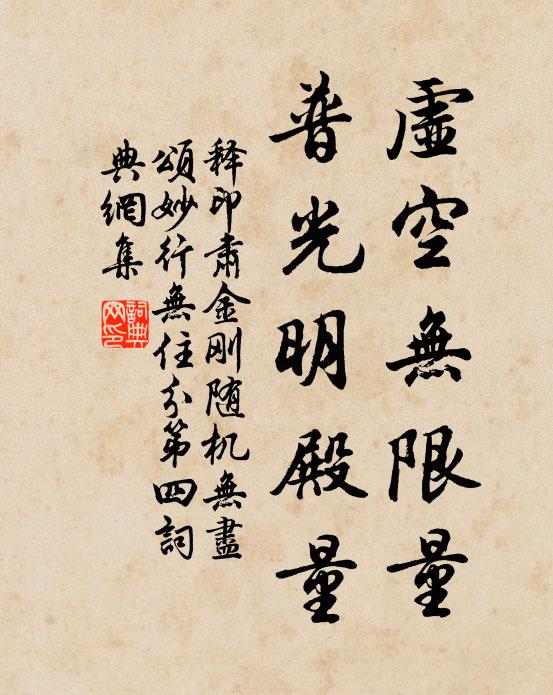 虛空無限量
普光明殿量
释印肅金刚随机無盡
頌妙行無住分第四詞
典網集
詞典
网印